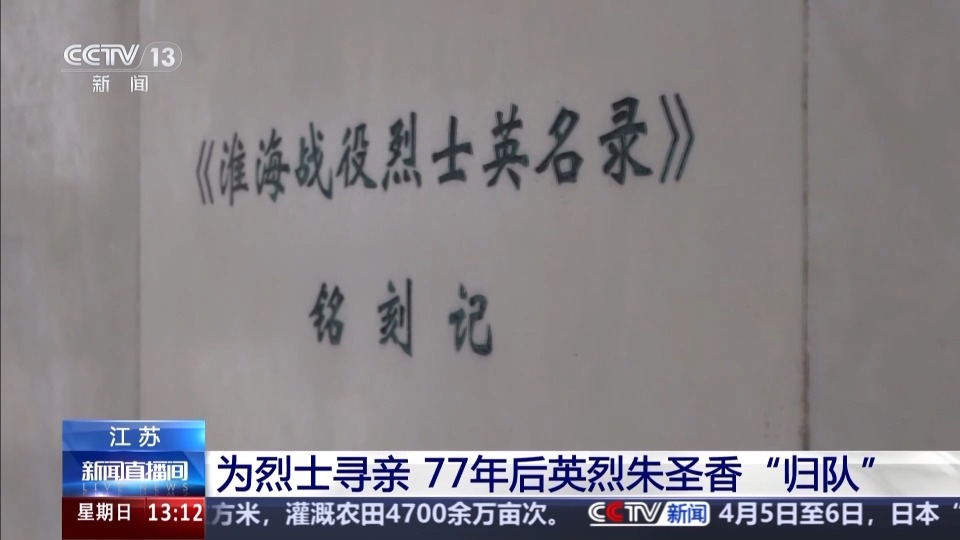 CCTV 13
新闻
《淮海战役烈士英名录》
铭刻记
江苏
新闻直播间
LIVE NEWS
为烈士寻亲 77年后英烈朱圣香“归队”
星期日 13:12
方米，灌溉农田4700余万亩次。 CCTV新闻 4月5日至6日，日本“